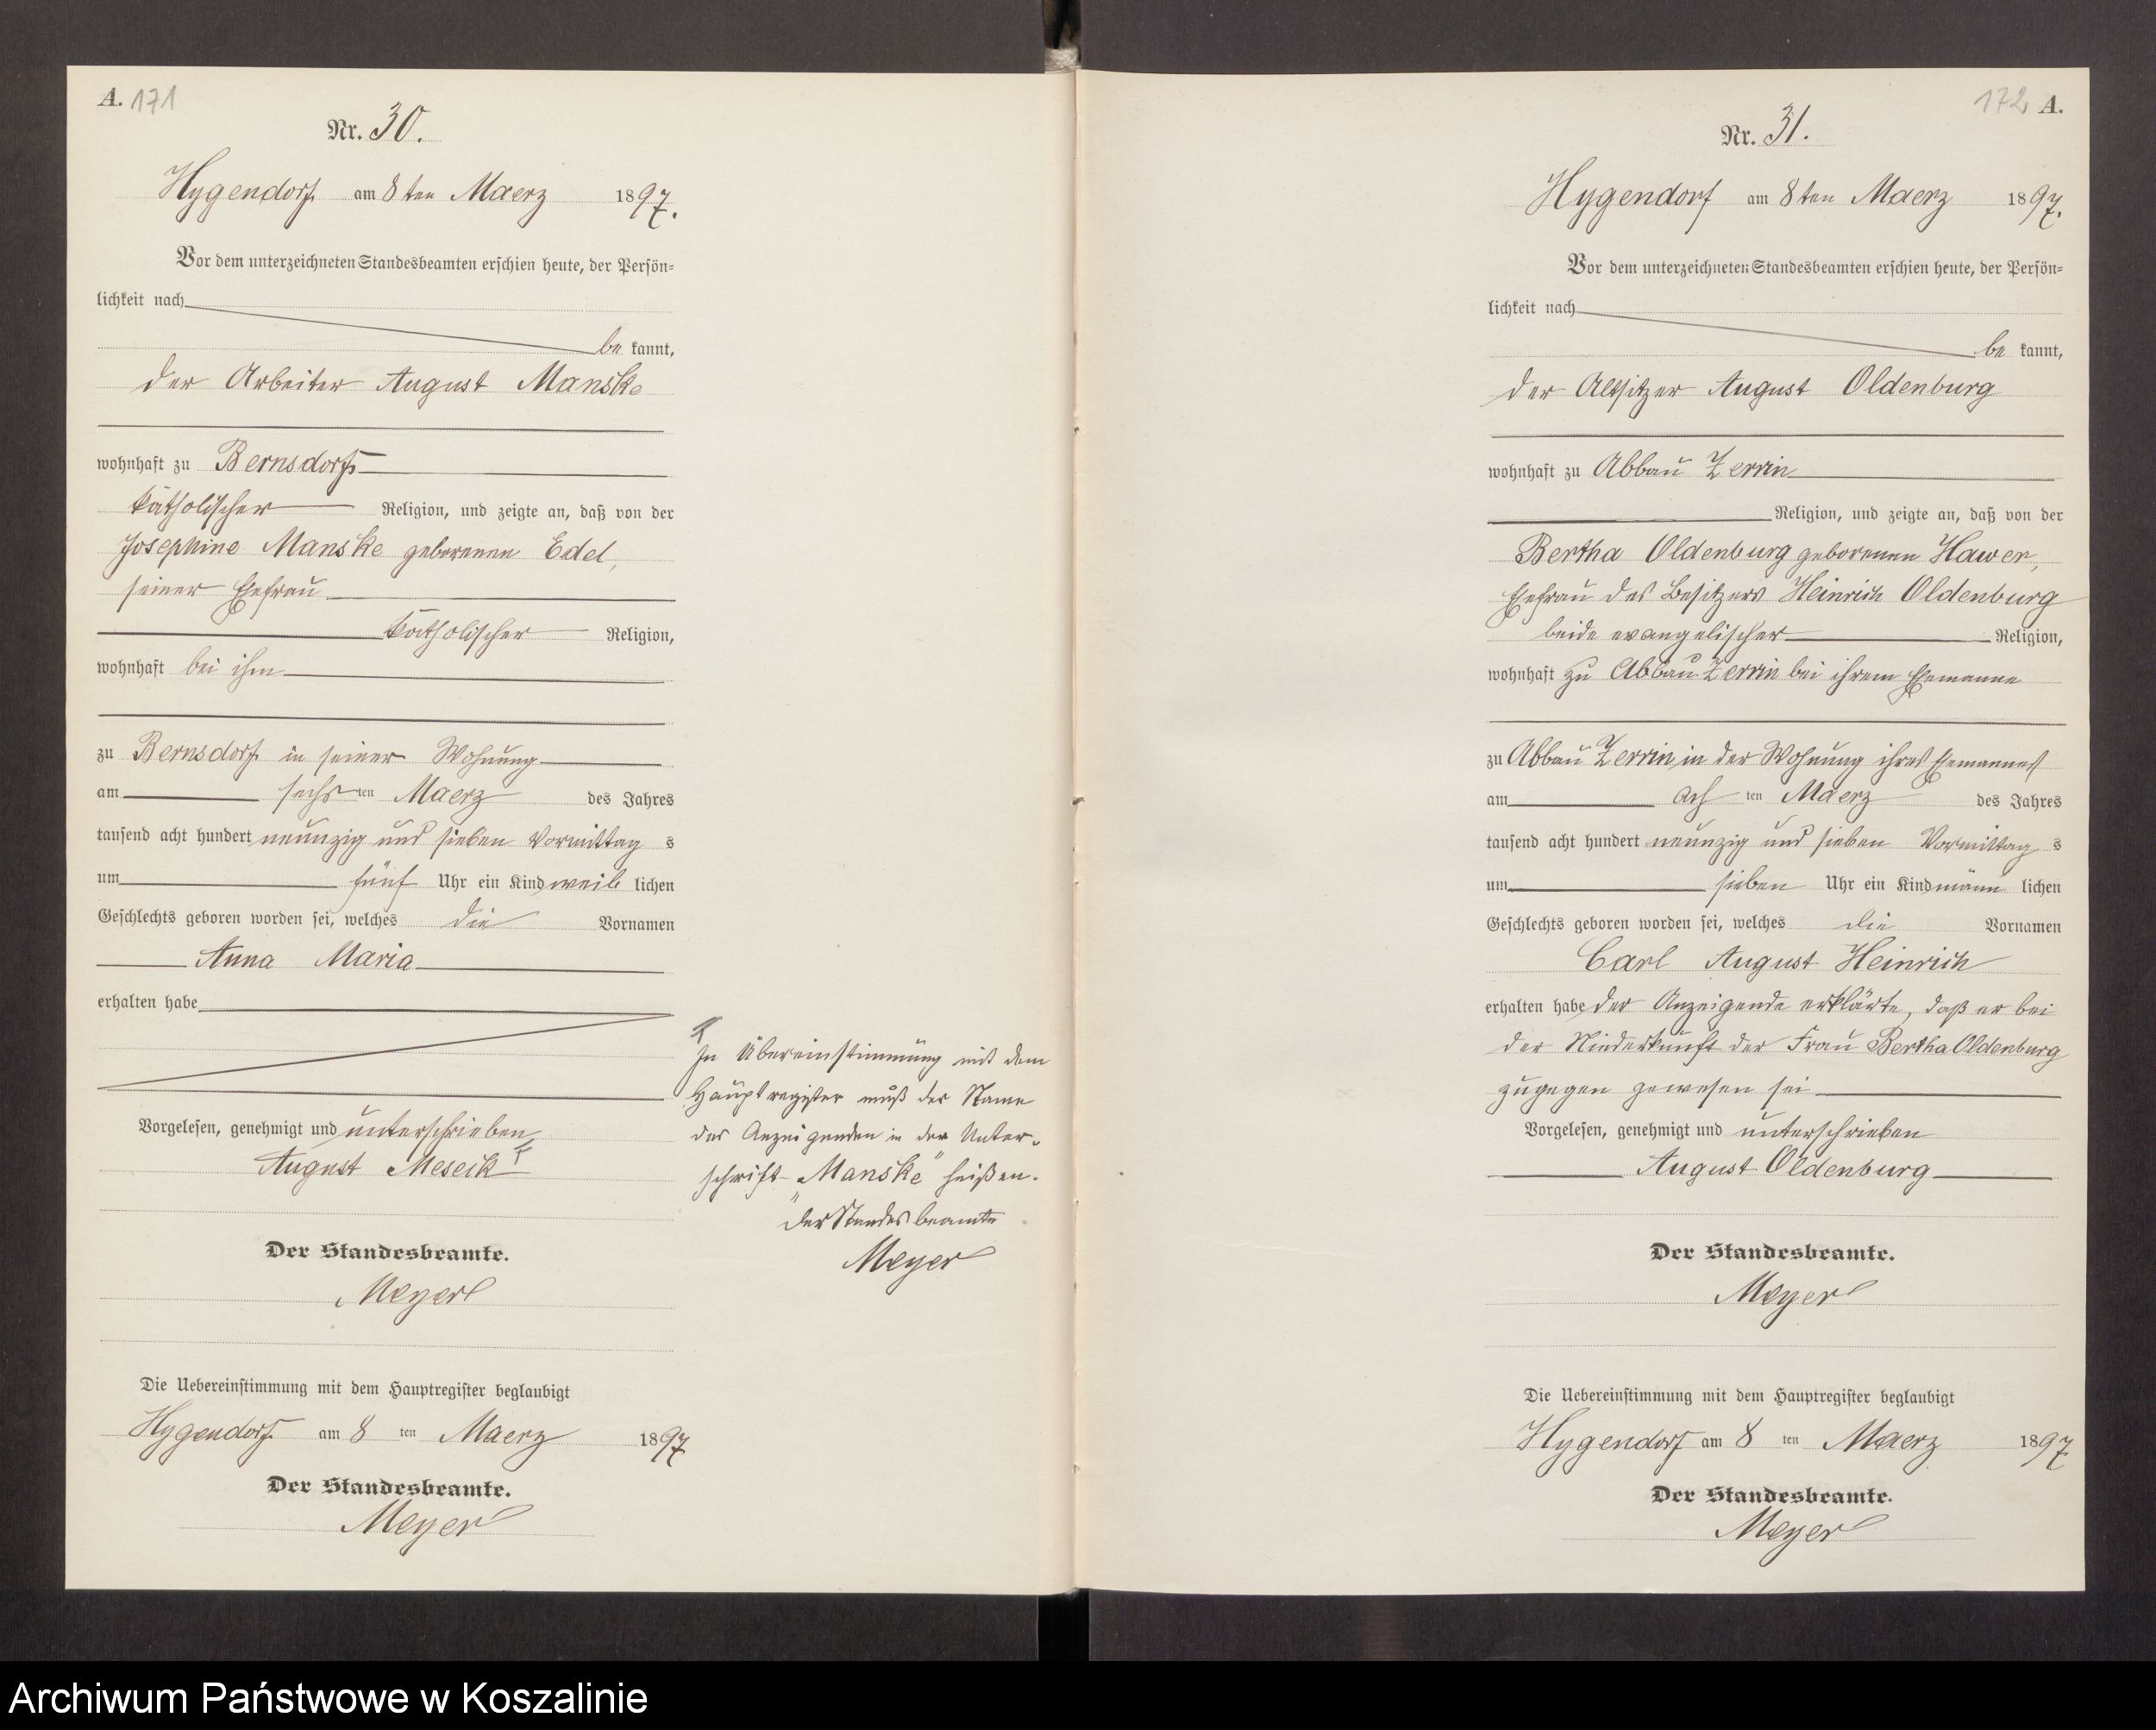 A. 171
Nr. 30.
Hygendorf am 8ten Maerz 1897.
Vor dem unterzeichneten Standesbeamten erschien heute, der Persön-
lichkeit nach
be kannt,
der Arbeiter August Manske
wohnhaft zu Bernsdorf
katholischer Religion, und zeigte an, daß von der
Josephine Manske geborenen Edel,
seiner Ehefrau
katholischer Religion,
wohnhaft bei ihm
zu Bernsdorf in seiner Wohnung
am sechs ten Maerz des Jahres
tausend acht hundert neunzig und sieben Vormittag s
um fünf Uhr ein Kind weib lichen
Geschlechts geboren worden sei, welches die Vornamen
Anna Maria
erhalten habe
Vorgelesen, genehmigt und unterschrieben
August Meseik
Der Standesbeamte.
Meyer
Die Uebereinstimmung mit dem Hauptregister beglaubigt
Hygendorf am 8 ten Maerz 1897
Der Standesbeamte.
Meyer
In Übereinstimmung mit dem
Hauptregister muß der Name
des Anzeigenden in der Unter-
schrift „Manske" heißen.
Der Standesbeamte
Meyer
172 A.
Nr. 31.
Hygendorf am 8ten Maerz 1897.
Vor dem unterzeichneten Standesbeamten erschien heute, der Persön-
lichkeit nach
be kannt,
der Altsitzer August Oldenburg
wohnhaft zu Abbau Zerrin
Religion, und zeigte an, daß von der
Bertha Oldenburg geborenen Hawer,
Ehefrau des Besitzers Heinrich Oldenburg
beide evangelischer Religion,
wohnhaft zu Abbau Zerrin bei ihrem Ehemanne
zu Abbau Zerrin in der Wohnung ihres Ehemannes
am ach ten Maerz des Jahres
tausend acht hundert neunzig und sieben Vormittag s
um sieben Uhr ein Kind männ lichen
Geschlechts geboren worden sei, welches die Vornamen
Carl August Heinrich
erhalten habe der Anzeigende erklärte, daß er bei
der Niederkunft der Frau Bertha Oldenburg
zugegen gewesen sei
Vorgelesen, genehmigt und unterschrieben
August Oldenburg
Der Standesbeamte.
Meyer
Die Uebereinstimmung mit dem Hauptregister beglaubigt
Hygendorf am 8 ten Maerz 1897
Der Standesbeamte.
Meyer
Archiwum Państwowe w Koszalinie